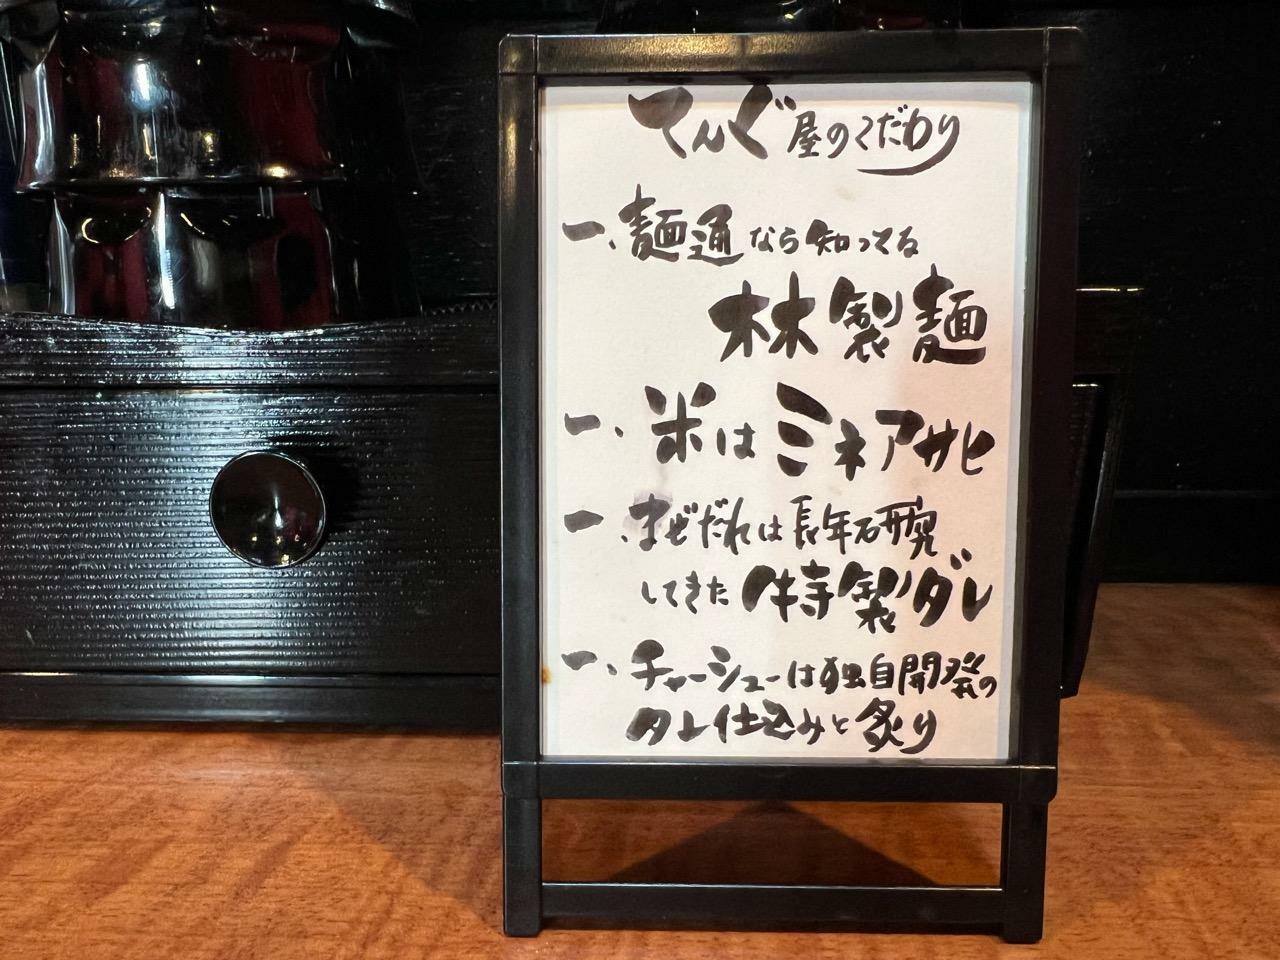 てんぐ屋のこだわり
一、麺通なら知ってる
林製麺
一、米はミネアサヒ
一、まぜだれは長年研究
してきた特製ダレ
一、チャーシューは独自開発の
タレ仕込みと炙り